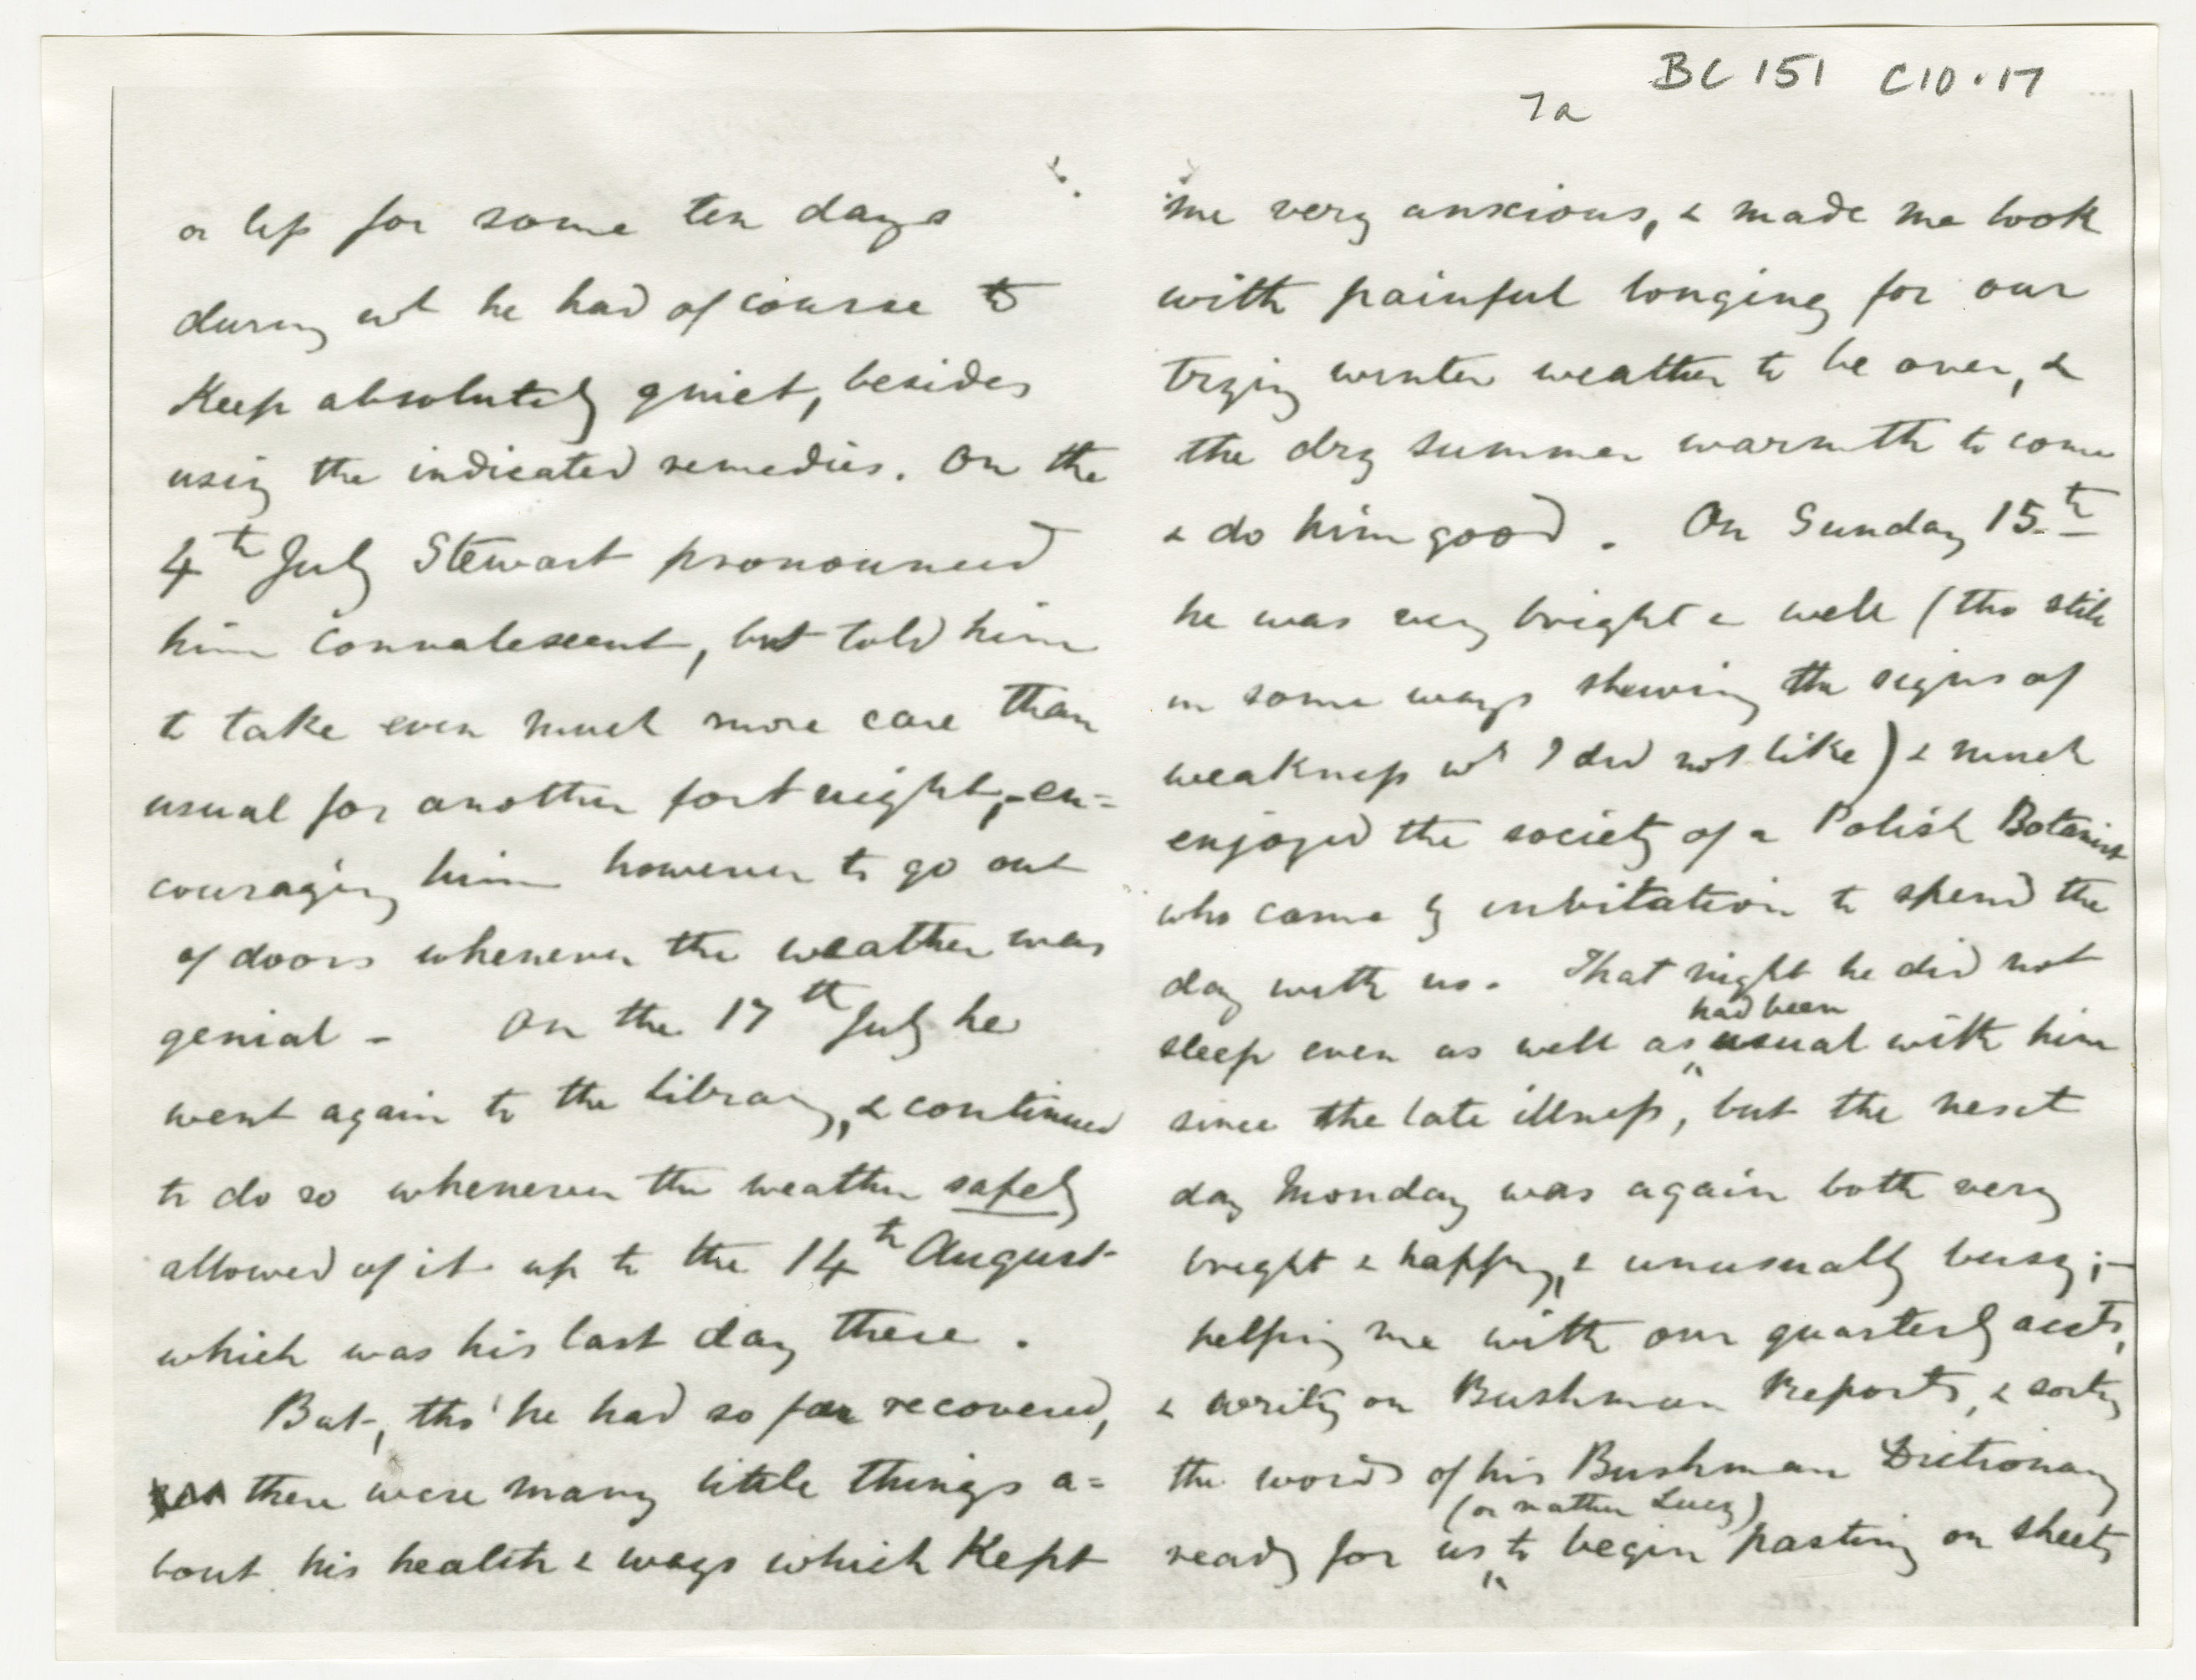 BC 151 C10.17
7a
or less for some ten days
during wh he had of course to
Keep absolutely quiet, besides
using the indicated remedies. On the
4th July Stewart pronounced
him convalescent, but told him
to take even much more care than
usual for another fortnight, - en=
couraging him however to go out
of doors whenever the weather was
genial - On the 17th July he
went again to the Library, & continued
to do so whenever the weather safely
allowed of it up to the 14th August
which was his last day there.
But, tho' he had so far recovered,
there were many little things a=
bout his health & ways which Kept
me very anxious, & made me look
with painful longing for our
trying winter weather to be over, &
the dry summer warmth to come
& do him good. On Sunday 15.th
he was very bright & well (tho still
in some ways shewing the signs of
weakness wh I did not like) & much
enjoyed the society of a Polish Botanist
who came by invitation to spend the
day with us. That night he did not
had been
sleep even as well as usual with him
since the late illness, but the next
day Monday was again both very
bright & happy, & unusually busy; -
helping me with our quarterly accts,
& writing on Bushman Reports, & sorting
the words of his Bushman Dictionary
(or rather Lucy)
ready for us to begin pasting on sheets